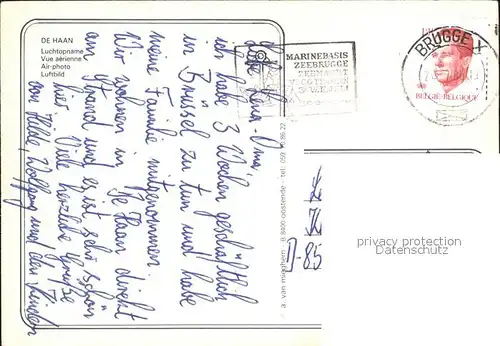 DE HAAN
Luchtopname
Vue aérienne
Air-photo
Luftbild
Liebe Lena-Oma,
ich habe 3 Wochen geschäftlich
in Brüssel zu tun und habe
meine Familie mitgenommen.
Wir wohnen in De Haan direkt
am Strand und es ist sehr schön
hier. Viele herzliche Grüße
von Hilde, Wolfgang und den Kindern
a. van mieghem - B 8400 oostende - tel. 059
MARINEBASIS
ZEEBRUGGE
ZEEMACHT
BRUGGE X
BELGIË-BELGIQUE
D-85
privacy protection
Datenschutz